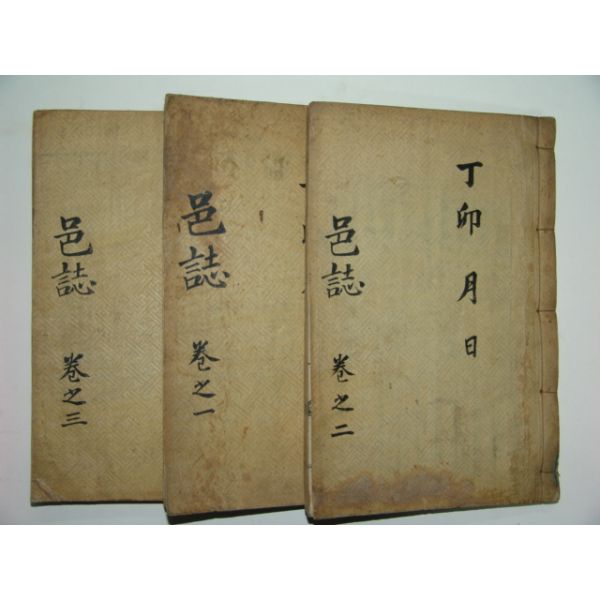 邑誌 卷之三
邑誌 卷之一
丁卯 月 日
邑誌 卷之二